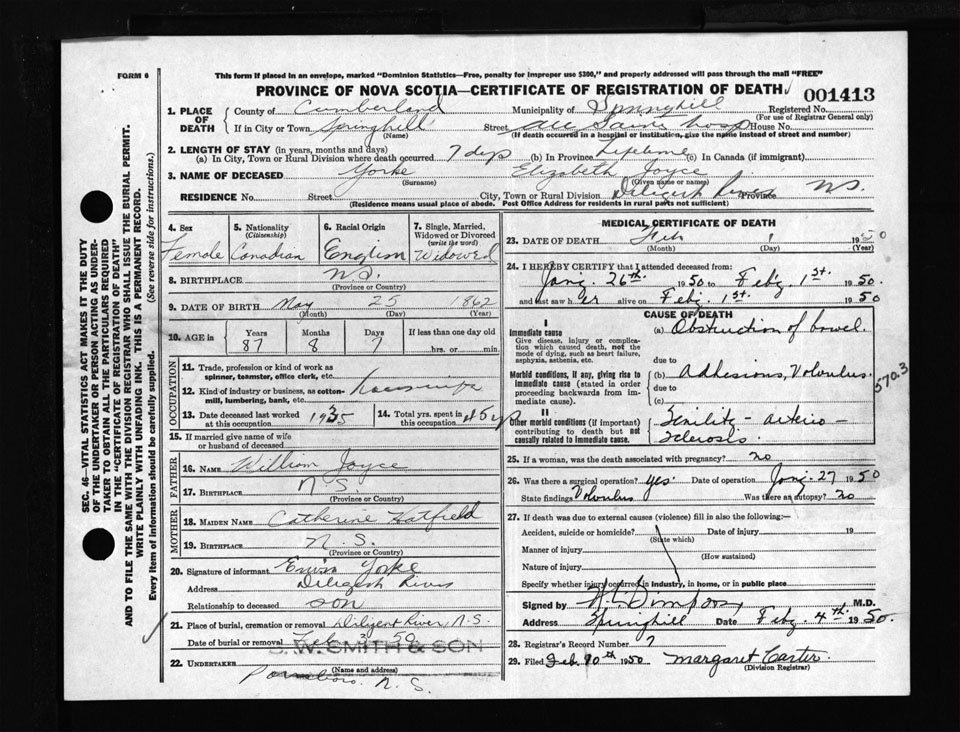 FORM 6
This form if placed in an envelope, marked "Dominion Statistics—Free, penalty for improper use $300," and properly addressed will pass through the mail "FREE"
PROVINCE OF NOVA SCOTIA—CERTIFICATE OF REGISTRATION OF DEATH
001413
1. PLACE OF DEATH
County of Cumberland Municipality of Springhill Registered No.
(For use of Registrar General only)
If in City or Town Springhill Street All Saints Hosp House No.
(Name) (If death occurred in hospital or institution, give the name instead of street and number)
2. LENGTH OF STAY (in years, months and days)
(a) In City, Town or Rural Division where death occurred 7 dys (b) In Province Lifetime (c) In Canada (if immigrant)
3. NAME OF DECEASED Yorke Elizabeth Joyce
(Surname) (Given name or names)
RESIDENCE No. Street City, Town or Rural Division Diligent River Province N.S.
(Residence means usual place of abode. Post Office Address for residents in rural parts not sufficient)
4. Sex Female
5. Nationality (Citizenship) Canadian
6. Racial Origin English
7. Single, Married, Widowed or Divorced (write the word) Widowed
8. BIRTHPLACE N.S.
(Province or Country)
9. DATE OF BIRTH May 25 1862
(Month) (Day) (Year)
10. AGE in Years Months Days If less than one day old
87 8 7 hrs. or min.
OCCUPATION
11. Trade, profession or kind of work as spinner, teamster, office clerk, etc.
12. Kind of industry or business, as cotton-mill, lumbering, bank, etc. housewife
13. Date deceased last worked at this occupation 1935
14. Total yrs. spent in this occupation
15. If married give name of wife or husband of deceased
FATHER
16. NAME William Joyce
17. BIRTHPLACE N.S.
(Province or Country)
MOTHER
18. MAIDEN NAME Catherine Hatfield
19. BIRTHPLACE N.S.
(Province or Country)
20. Signature of informant Yorke
Address Diligent River
Relationship to deceased son
21. Place of burial, cremation or removal Diligent River, N.S.
Date of burial or removal Feb 3 50
S.W. SMITH & SON
22. UNDERTAKER
(Name and address)
Parrsboro. N.S.
MEDICAL CERTIFICATE OF DEATH
23. DATE OF DEATH Feb 1 1950
(Month) (Day) (Year)
24. I HEREBY CERTIFY that I attended deceased from
Jany. 26th 1950 to Feby. 1st. 1950.
and last saw her alive on Feby. 1st. 1950
CAUSE OF DEATH
I
Immediate cause
Give disease, injury or complication which caused death, not the mode of dying, such as heart failure, asphyxia, asthenia, etc.
(a) Obstruction of bowel.
due to
Morbid conditions, if any, giving rise to immediate cause (stated in order proceeding backwards from immediate cause).
(b) Adhesions, Volvulus.
due to
(c)
570.3
II
Other morbid conditions (if important) contributing to death but not causally related to immediate cause.
Senility - arterio-
sclerosis.
25. If a woman, was the death associated with pregnancy? no
26. Was there a surgical operation? yes. Date of operation Jany. 27 1950
State findings Volvulus Was there an autopsy? no
27. If death was due to external causes (violence) fill in also the following:—
Accident, suicide or homicide? Date of injury 19
(State which)
Manner of injury
(How sustained)
Nature of injury
Specify whether injury occurred in industry, in home, or in public place
Signed by M.D.
Address Springhill Date Feby. 4th. 1950.
28. Registrar's Record Number 7
29. Filed Feb. 10th 1950 Margaret Carter.
(Division Registrar)
SEC. 46—VITAL STATISTICS ACT MAKES IT THE DUTY
OF THE UNDERTAKER OR PERSON ACTING AS UNDER-
TAKER TO OBTAIN ALL THE PARTICULARS REQUIRED
IN THE "CERTIFICATE OF REGISTRATION OF DEATH"
AND TO FILE THE SAME WITH THE DIVISION REGISTRAR WHO SHALL ISSUE THE BURIAL PERMIT.
WRITE PLAINLY WITH UNFADING INK. THIS IS A PERMANENT RECORD.
Every item of information should be carefully supplied. (See reverse side for instructions.)